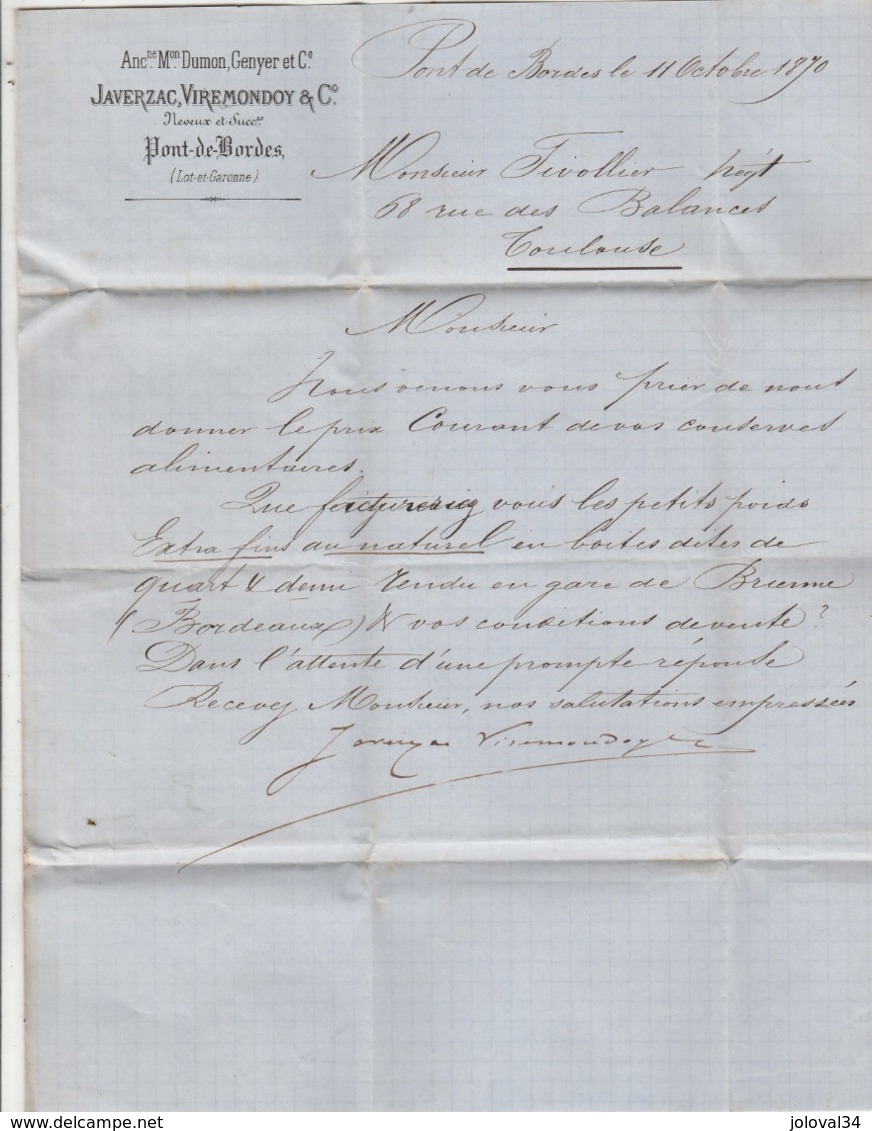 Anc.ne M.on Dumon, Genyer et C.e
JAVERZAC, VIREMONDOY & C.o
Neveux et Succ.rs
Pont-de-Bordes,
(Lot-et-Garonne)
Pont de Bordes le 11 Octobre 1870
Monsieur Tivollier négt
68 rue des Balances
Toulouse
Monsieur
Nous venons vous prier de nous
donner le prix Courant de vos conserves
alimentaires.
Que factureriez vous les petits poids
Extra fins au naturel en boites dites de
quart & demi rendu en gare de Brienne
(Bordeaux) & vos conditions de vente ?
Dans l'attente d'une prompte réponse
Recevez Monsieur, nos salutations empressées
Javerzac Viremondoy & Co
delcampe.net
joloval34